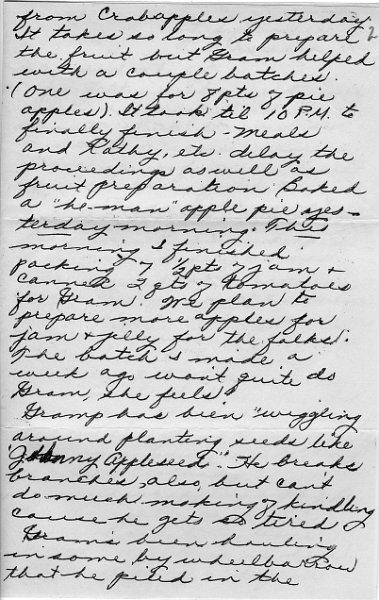 from Crabapples yesterday. 2
It takes so long to prepare
the fruit but Gram helped
with a couple batches.
(One was for 8 pts of pie
apples). It took til 10 P.M. to
finally finish - Meals
and Kathy, etc. delay the
proceedings as well as
fruit preparation. Baked
a "he-man" apple pie yes-
terday morning. This
morning I finished
packing 7 ½ pts of jam &
canned 2 qts of tomatoes
for Gram. We plan to
prepare more apples for
jam & jelly for the folks.
The batch I made a
week ago won't quite do
Gram, she feels!
Gramp has been "wiggling
around planting seeds like
"Johnny Appleseed". He breaks
branches, also, but can't
do much making of kindling
cause he gets so tired.
Gram's been hauling
in some by wheelbarrow
that he piled in the